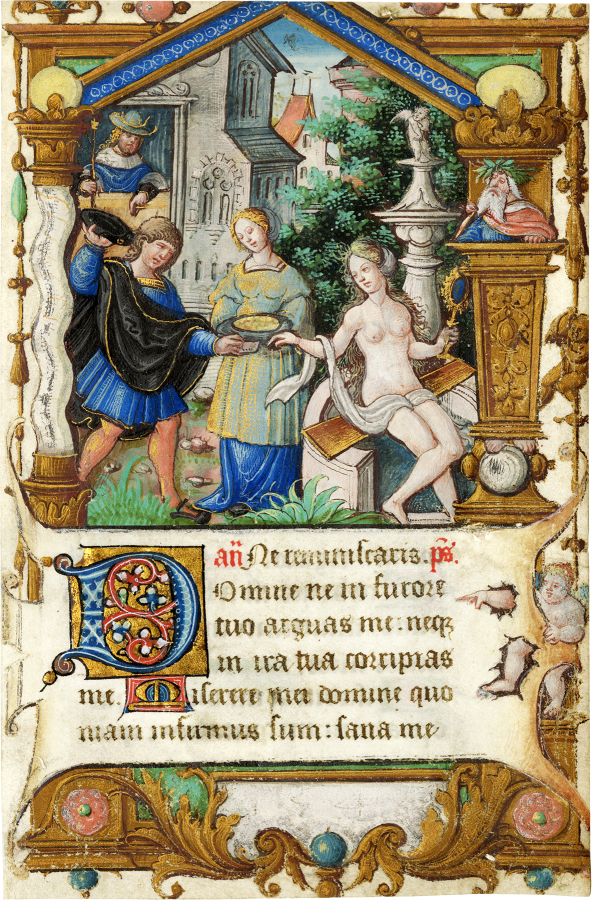 añ Ne reminiscaris. ps̃.
Domine ne in furore
tuo arguas me: neqꝫ
in ira tua corripias
me Miserere mei domine quo
niam infirmus sum: sana me